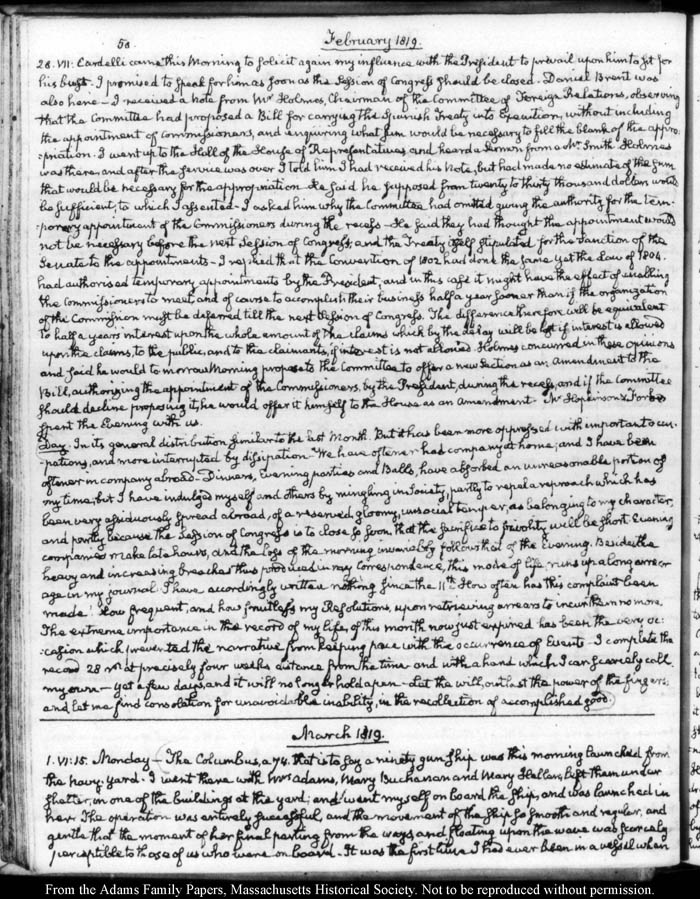 50
February 1819.
28. VII: Cardelli came this Morning to solicit again my influence with the President to prevail upon him to sit for
his bust. I promised to speak for him as soon as the Session of Congress should be closed. Daniel Brent was
also here — I received a Note from Mr Holmes, Chairman of the Committee of Foreign Relations, observing
that the Committee had proposed a Bill for carrying the Spanish Treaty into Execution, without including
the appointment of Commissioners, and enquiring what sum would be necessary to fill the blank of the appro-
-priation. I went up to the Hall of the House of Representatives and heard a Sermon from a Mr Smith. Holmes
was there, and after the service was over I told him I had received his Note, but had made no estimate of the sum
that would be necessary for the appropriation. He said he supposed from twenty to thirty thousand dollars would
be sufficient, to which I assented. I asked him why the Committee had omitted giving the authority for the tem-
-porary appointment of the Commissioners during the recess — He said they had thought the appointment would
not be necessary before the next Session of Congress, and the Treaty itself stipulated for the sanction of the
Senate to the appointments — I replied that the Convention of 1802 had done the same yet the Law of 1804.
had authorised temporary appointments by the President, and in this case it might have the effect of enabling
the Commissioners to meet, and of course to accomplish their business half a year sooner than if the organization
of the Commission must be deferred till the next Session of Congress. The difference therefore will be equivalent
to half a years interest upon the whole amount of the claims which by the delay will be lost if interest is allowed
upon the claims, to the public, and to the claimants, if interest is not allowed. Holmes concurred in these opinions
and said he would to morrow Morning propose to the Committee to offer a new Section as an Amendment to the
Bill, authorizing the appointment of the Commissioners, by the President, during the recess, and if the Committee
should decline proposing it, he would offer it himself to the House as an Amendment. Mr Hopkinson & Forbes
spent the Evening with us.
Day. In its general distribution similar to the last Month. But it has been more oppressed with important occu-
-pations, and more interrupted by dissipation — We have oftener had company at home, and I have been
oftener in company abroad — Dinners, Evening parties and Balls, have absorbed an unreasonable portion of
my time, but I have indulged myself and others by mingling in Society, partly to repel a reproach which has
been very assiduously spread abroad, of a reserved, gloomy, unsocial temper, as belonging to my character,
and partly because the Session of Congress is to close so soon, that the sacrifice to frivolity will be short. Evening
companies make late hours, and the loss of the morning invariably follows that of the Evening. Besides the
heavy and increasing breaches thus produced in my Correspondence, this mode of life runs up a long arrear-
age in my journal. I have accordingly written nothing since the 11th. How often has this complaint been
made! How frequent, and how fruitless my Resolutions, upon retrieving arrears to incur them no more.
The extreme importance in the record of my life, of this month now just expired has been the very oc-
-casion which prevented the narrative from keeping pace with the occurrence of Events. I complete the
record 28 at precisely four weeks distance from the time and with a hand which I can scarcely call
my own — Yet a few days, and it will no longer hold a pen — Let the will, outlast the power of the fingers;
and let me find consolation for unavoidable inability, in the recollection of accomplished good.
March 1819.
1. VI:15. Monday — The Columbus, a 74. that is to say a ninety gun ship was this morning launched from
the navy yard. I went there with Mrs Adams, Mary Buchanan and Mary Hellen, left them under
shelter, in one of the buildings at the yard; and went myself on board the ship, and was launched in
her. The operation was entirely successful, and the movement of the ship so smooth and regular, and
gentle that the moment of her final parting from the ways and floating upon the wave was scarcely
perceptible to those of us who were on board. It was the first time I had ever been in a vessel when
From the Adams Family Papers, Massachusetts Historical Society. Not to be reproduced without permission.